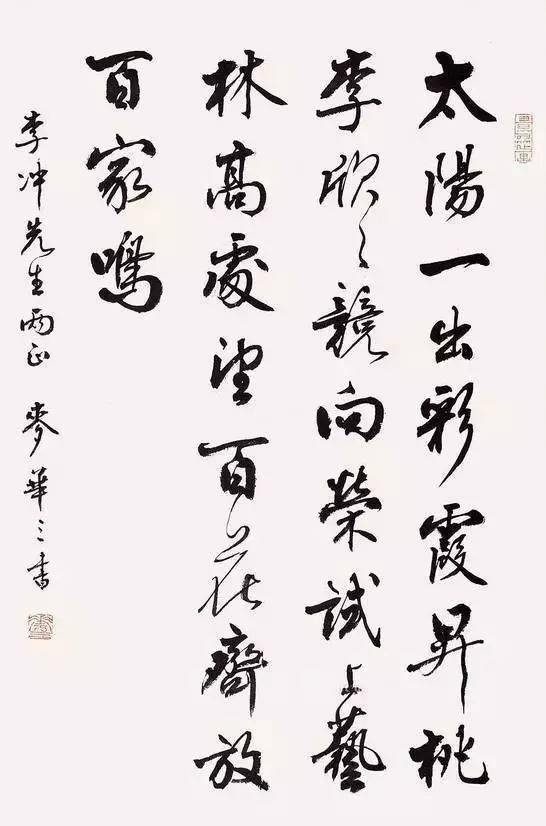 太陽一出彩霞昇桃
李欣々競向榮試上藝
林高處望百花齊放
百家鳴
李冲先生兩正 麥華三書